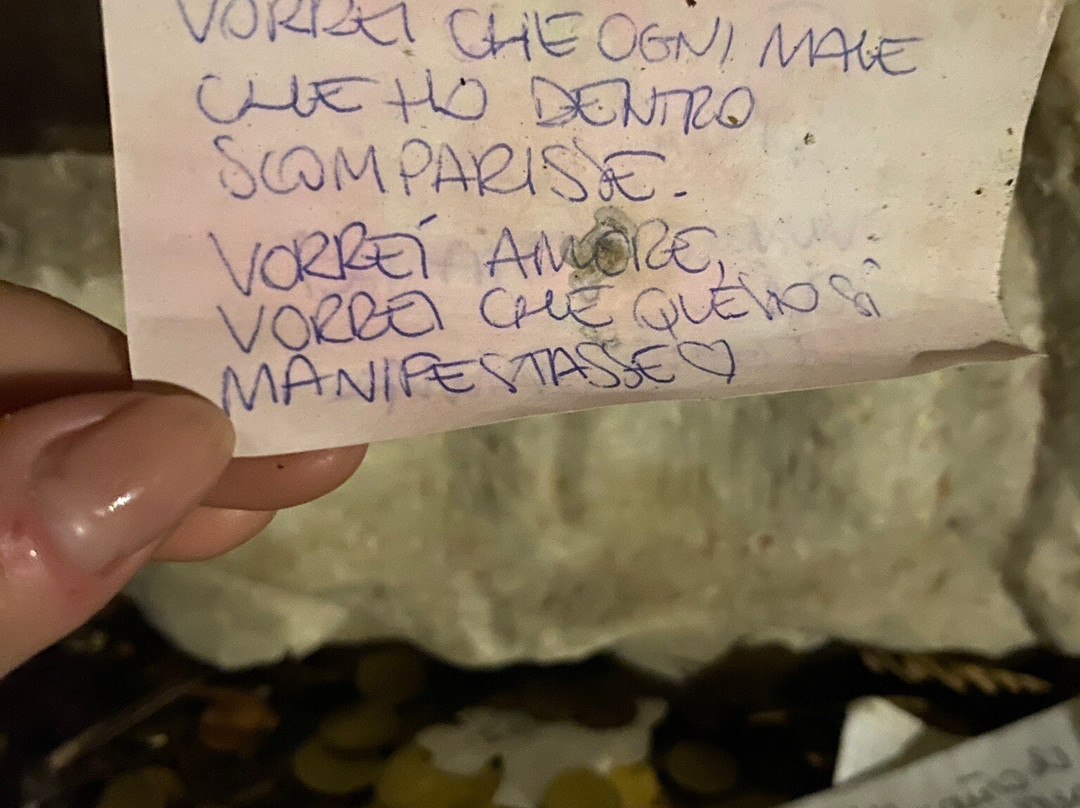 VORREI CHE OGNI MALE
CHE HO DENTRO
SCOMPARISSE.
VORREI AMORE,
VORREI CHE QUESTO SI
MANIFESTASSE♡